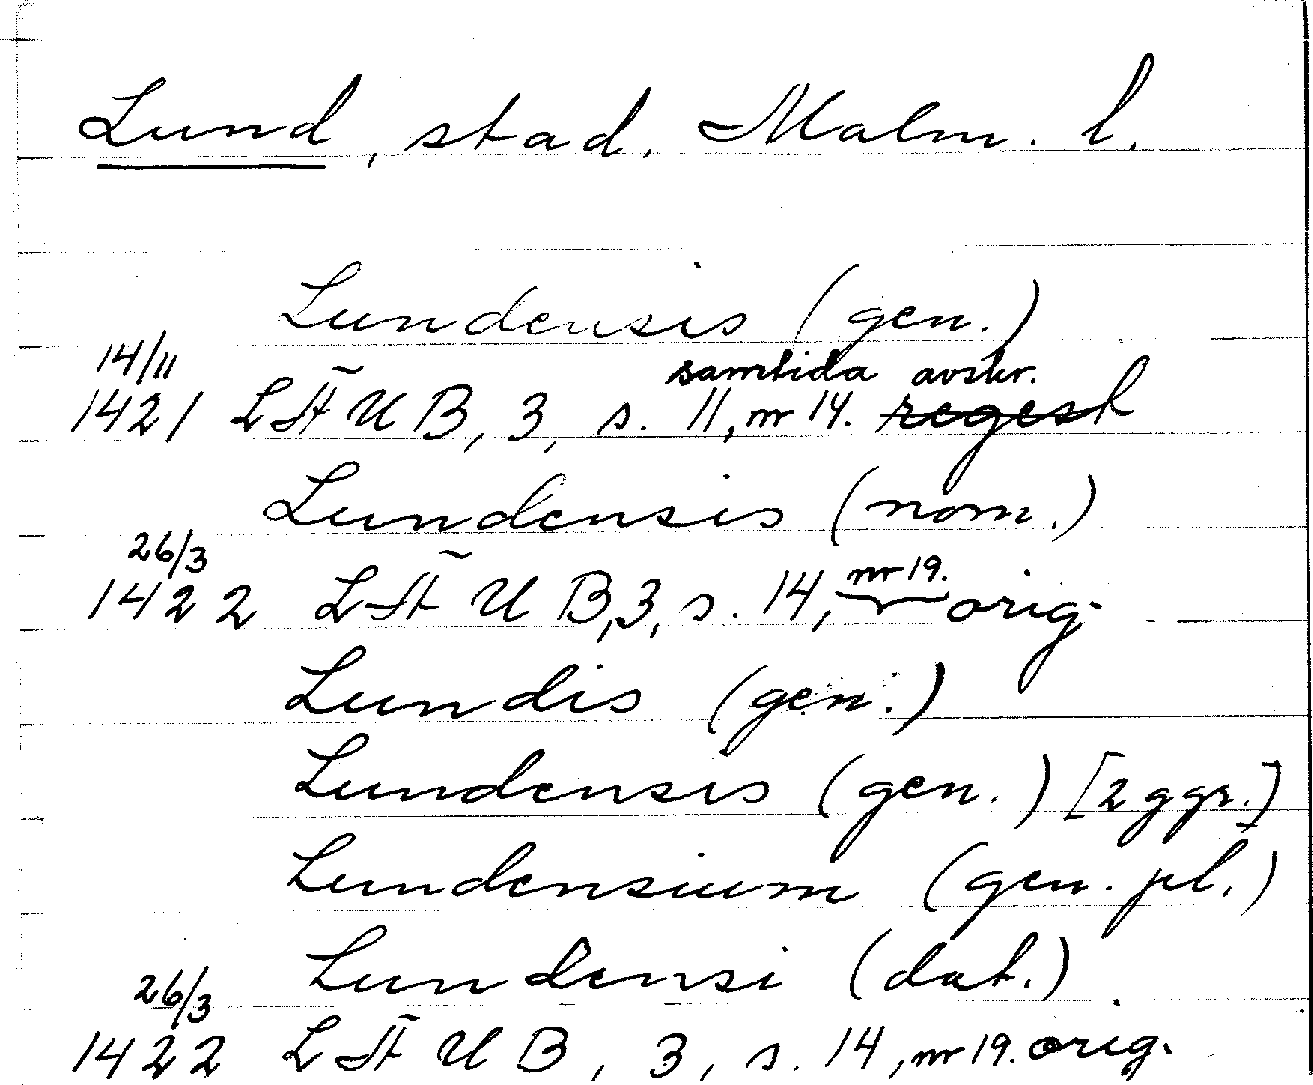 Lund, stad, Malm. l.
Lundensis (gen.)
14/11 samtida avskr.
1421 LÄUB, 3, s. 11, nr 14. regest
Lundensis (nom.)
26/3 nr 19.
1422 LÄUB, 3, s. 14, orig.
Lundis (gen.)
Lundensis (gen.) [2 ggr.]
Lundensium (gen. pl.)
Lundensi (dat.)
26/3
1422 LÄUB, 3, s. 14, nr 19. orig.